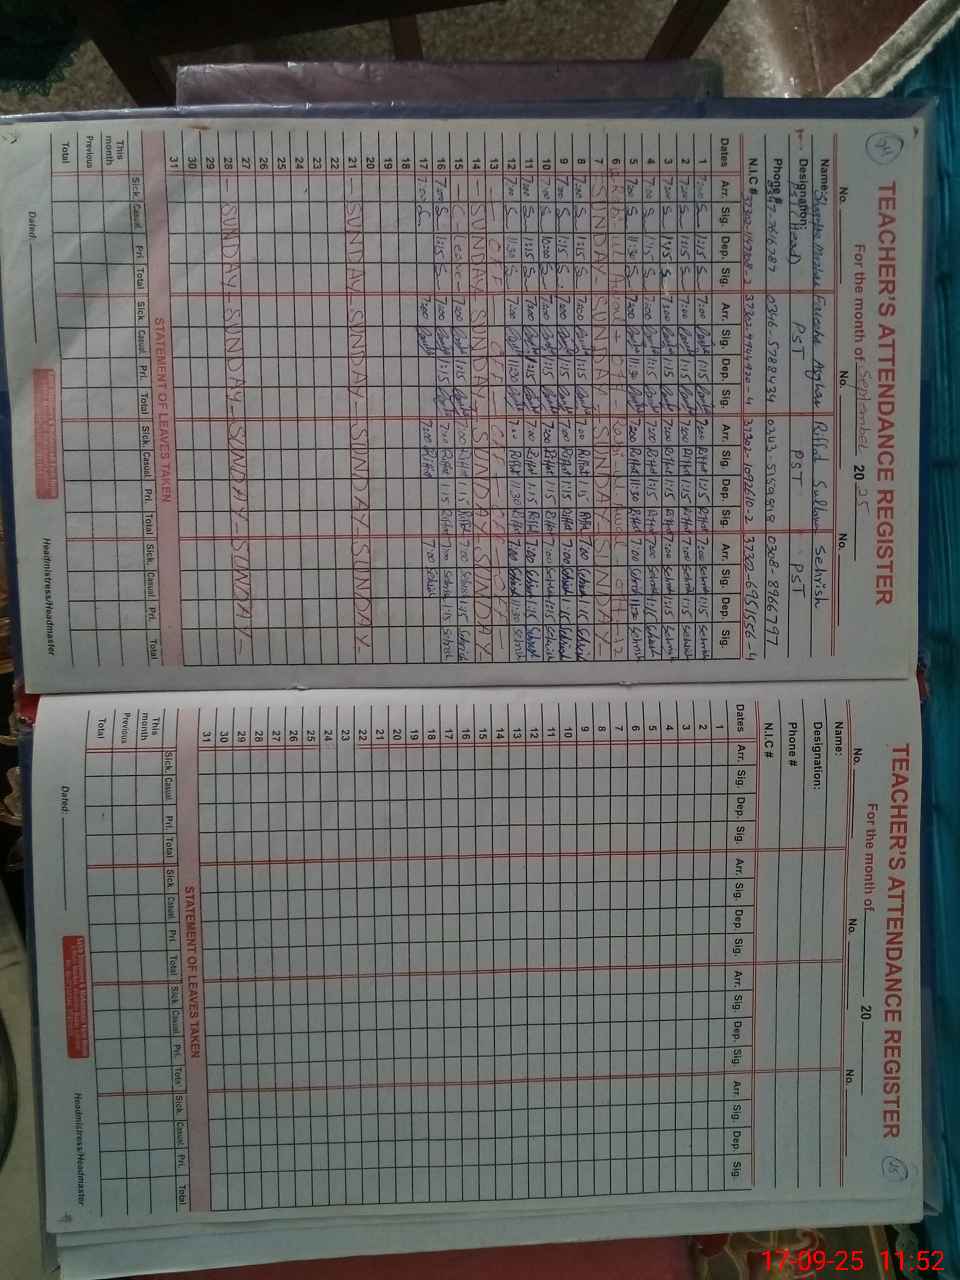 24
TEACHER'S ATTENDANCE REGISTER
For the month of September 2025
No. No. No.
Name: Farzana Asghar Riffat Sultana Sehrish
Designation: PST (Head) PST PST PST
Phone # 0346-5788434 0343-5559918 0308-8966797
N.I.C # 37302-1092610-2 37302-6951556-4
Dates Arr. Sig. Dep. Sig. Arr. Sig. Dep. Sig. Arr. Sig. Dep. Sig. Arr. Sig. Dep. Sig.
1 7:00 S 1:15 S 7:00 1:15 7:00 Riffat 1:15 Riffat 7:00 Sehrish 1:15 Sehrish
2 7:00 S 1:15 S 7:00 1:15 7:00 Riffat 1:15 Riffat 7:00 Sehrish 1:15 Sehrish
3 7:00 S 1:15 S 7:00 1:15 7:00 Riffat 1:15 Riffat 7:00 Sehrish 1:15 Sehrish
4 7:00 S 1:15 S 7:00 1:15 7:00 Riffat 1:15 Riffat 7:00 Sehrish 1:15 Sehrish
5 7:00 S 11:30 S 7:00 11:30 7:00 Riffat 11:30 Riffat 7:00 Sehrish Sehrish
6
7 SUNDAY - SUNDAY - SUNDAY - SUNDAY -
8 7:00 S 1:15 S 7:00 1:15 7:00 Riffat 1:15 Riffat 7:00 Sehrish 1:15 Sehrish
9 7:00 S 1:15 S 7:00 1:15 7:00 Riffat 1:15 Riffat 7:00 Sehrish 1:15 Sehrish
10 7:00 S 10:00 S 7:00 1:15 7:00 Riffat 1:15 Riffat 7:00 Sehrish 1:15 Sehrish
11 7:00 S 1:15 S 7:00 1:15 7:00 Riffat 1:15 Riffat 7:00 Sehrish 1:15 Sehrish
12 7:00 S 11:30 S 7:00 11:30 7:00 Riffat 11:30 Riffat 7:00 Sehrish 11:30 Sehrish
13 - OFF - OFF - OFF - OFF -
14 - SUNDAY - SUNDAY - SUNDAY - SUNDAY -
15 - Leave - 7:00 1:15 7:00 Riffat 1:15 Riffat 7:00 Sehrish 1:15 Sehrish
16 7:00 S 1:15 S 7:00 1:15 7:00 Riffat 1:15 Riffat 7:00 Sehrish 1:15 Sehrish
17 7:00 S 7:00 7:00 Riffat 7:00 Sehrish
18
19
20
21 - SUNDAY - SUNDAY - SUNDAY - SUNDAY -
22
23
24
25
26
27
28 - SUNDAY - SUNDAY - SUNDAY - SUNDAY -
29
30
31
STATEMENT OF LEAVES TAKEN
Sick. Casual Pri. Total Sick. Casual Pri. Total Sick. Casual Pri. Total Sick. Casual Pri. Total
This month
Previous
Total
Dated: Headmistress/Headmaster
25
TEACHER'S ATTENDANCE REGISTER
For the month of 20
No. No. No.
Name:
Designation:
Phone #
N.I.C #
Dates Arr. Sig. Dep. Sig. Arr. Sig. Dep. Sig. Arr. Sig. Dep. Sig. Arr. Sig. Dep. Sig.
1
2
3
4
5
6
7
8
9
10
11
12
13
14
15
16
17
18
19
20
21
22
23
24
25
26
27
28
29
30
31
STATEMENT OF LEAVES TAKEN
Sick. Casual Pri. Total Sick. Casual Pri. Total Sick. Casual Pri. Total Sick. Casual Pri. Total
This month
Previous
Total
Dated: Headmistress/Headmaster
17-09-25 11:52